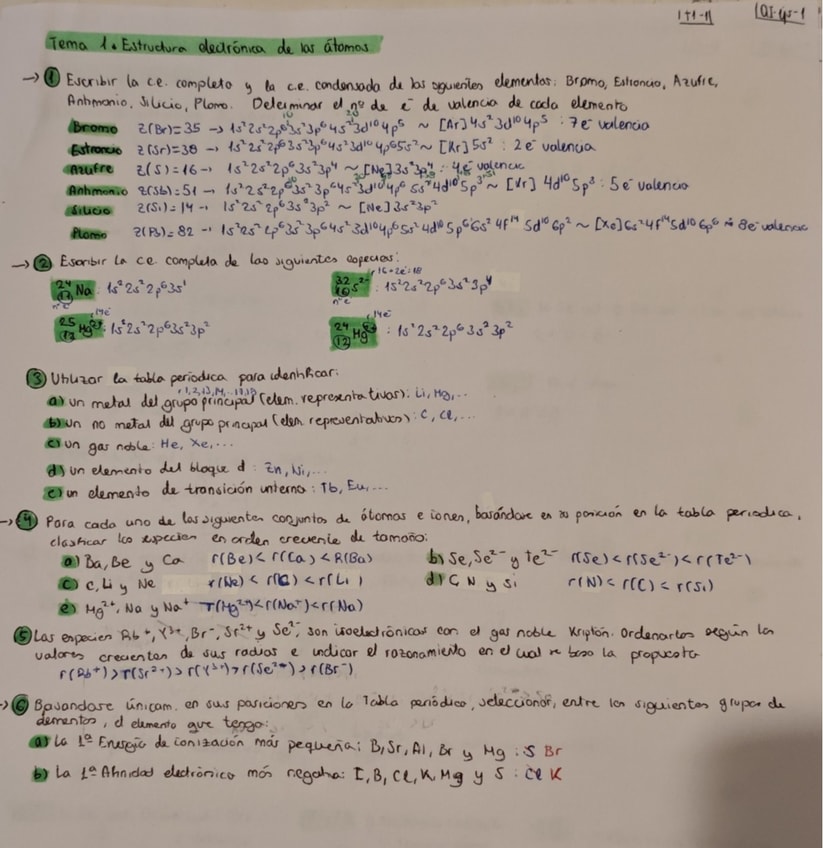 1+1-11 |QI-ys-1
Tema 1. Estructura electrónica de los átomos
→ ① Escribir la c.e. completo y la c.e. condensada de los siguientes elementos: Bromo, Estroncio, Azufre,
Antimonio, Silicio, Plomo. Determinar el nº de e⁻ de valencia de cada elemento
Bromo Z(Br)=35 → 1s²2s²2p⁶3s²3p⁶4s²3d¹⁰4p⁵ ~ [Ar]4s²3d¹⁰4p⁵ : 7e⁻ valencia
Estroncio Z(Sr)=38 → 1s²2s²2p⁶3s²3p⁶4s²3d¹⁰4p⁶5s² ~ [Kr]5s² : 2e⁻ valencia
Azufre Z(S)=16 → 1s²2s²2p⁶3s²3p⁴ ~ [Ne]3s²3p⁴ : 4e⁻ valencia
Antimonio Z(Sb)=51 → 1s²2s²2p⁶3s²3p⁶4s²3d¹⁰4p⁶5s²4d¹⁰5p³ ~ [Kr] 4d¹⁰5p³ : 5e⁻ valencia
Silicio Z(Si)=14 → 1s²2s²2p⁶3s²3p² ~ [Ne]3s²3p²
Plomo Z(Pb)=82 → 1s²2s²2p⁶3s²3p⁶4s²3d¹⁰4p⁶5s²4d¹⁰5p⁶6s²4f¹⁴5d¹⁰6p² ~ [Xe]6s²4f¹⁴5d¹⁰6p⁶ : 8e⁻ valencia
→ ② Escribir la c.e. completa de las siguientes especies:
r16+2e⁻=18
24 Na : 1s²2s²2p⁶3s¹ 32 16 S²⁻ : 1s²2s²2p⁶3s²3p⁴
nºe⁻ nºe⁻
14e⁻ 14e⁻
25 12 Mg²⁺ : 1s²2s²2p⁶3s²3p² 24 12 Mg²⁺ : 1s²2s²2p⁶3s²3p²
③ Utilizar la tabla periodica para identificar:
a) un metal del grupo principal (elem. representativos): Li, Mg,..
b) un no metal del grupo principal (elem representativos): C, Cl,...
c) un gas noble: He, Xe,...
d) un elemento del bloque d : Zn, Ni,...
e) un elemento de transición interna : Tb, Eu,...
→ ④ Para cada uno de los siguientes conjuntos de átomos e iones, basándose en su posición en la tabla periodica,
clasificar las especies en orden creciente de tamaño:
a) Ba, Be y Ca r(Be)<r(Ca)<R(Ba) b) Se, Se²⁻ y Te²⁻ r(Se)<r(Se²⁻)<r(Te²⁻)
c) C, Li y Ne r(Ne)<r(C)<r(Li) d) C, N y Si r(N)<r(C)<r(Si)
e) Mg²⁺, Na y Na⁺ r(Mg²⁺)<r(Na⁺)<r(Na)
⑤ Las especies Rb⁺, Y³⁺, Br⁻, Sr²⁺ y Se²⁻, son isoelectrónicas con el gas noble Kriptón. Ordenarlos según los
valores crecientes de sus radios e indicar el razonamiento en el cual se basa la propuesta
r(Rb⁺)>r(Sr²⁺)>r(Y³⁺)>r(Se²⁻)>r(Br⁻)
→ ⑥ Basandose únicam. en sus posiciones en la Tabla periódica, seleccionar, entre los siguientes grupos de
elementos, el elemento que tenga:
a) La 1ª Energía de ionización más pequeña: B, Sr, Al, Br y Mg : S Br
b) La 1ª Afinidad electrónica más negativa: I, B, Cl, K, Mg y S : Cl K